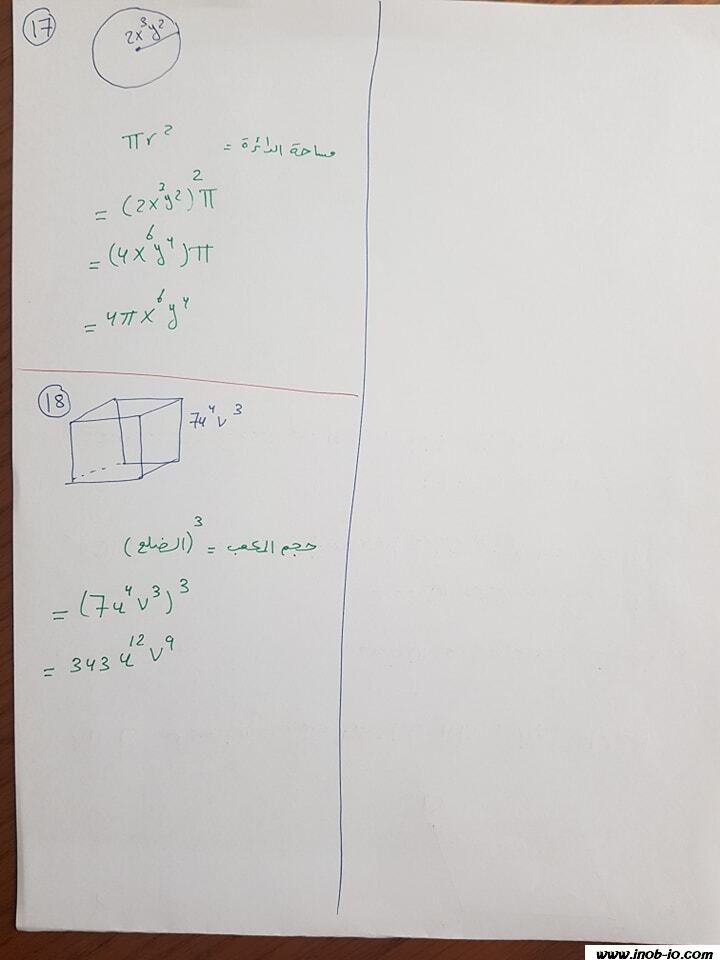 17
2x³y²
مساحة الدائرة = πr²
= (2x³y²)²π
= (4x⁶y⁴)π
= 4πx⁶y⁴
18
7u⁴v³
حجم المكعب = (الضلع)³
= (7u⁴v³)³
= 343u¹²v⁹
www.inob-io.com